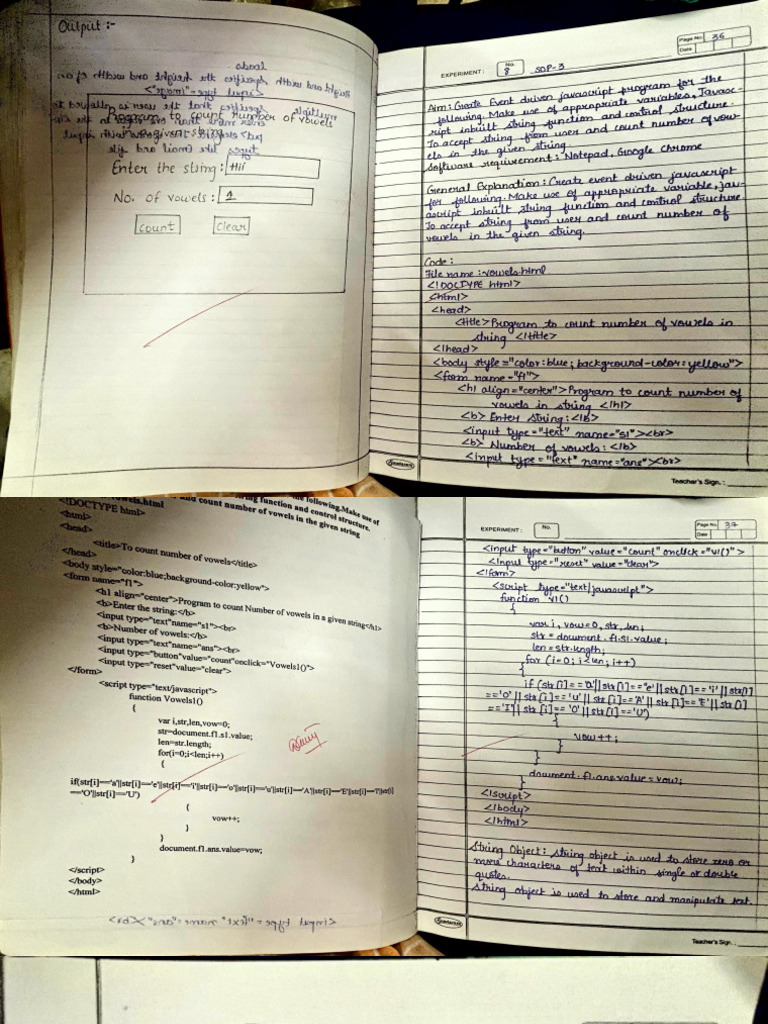 Output :-
Program to count number of vowels
in a given string
Enter the string: Hii
No. of vowels: 1
count clear
EXPERIMENT: No. 8 SOP-3
Page No. 36
Date
Aim: Create Event driven javascript program for the
following. Make use of appropriate variables, Javasc-
ript inbuilt string function and control structure.
To accept string from user and count number of vow-
els in the given string
Software requirement: Notepad, Google chrome
General Explanation: Create event driven javascript
for following. Make use of appropriate variable, jav-
ascript inbuilt string function and control structure.
To accept string from user and count number of
vowels in the given string.
Code:
File name: vowels.html
<!DOCTYPE html>
<html>
<head>
<title>Program to count number of vowels in
string </title>
</head>
<body style="color:blue; background-color:yellow">
<form name="f1">
<h1 align="center">Program to count number of
vowels in string </h1>
<b> Enter String:</b>
<input type="text" name="s1"><br>
<b> Number of vowels:</b>
<input type="text" name="ans"><br>
Sundaram
Teacher's Sign.:
the following.Make use of
string function and control structure.
and count number of vowels in the given string
<!DOCTYPE html>
<html>
<head>
<title>To count number of vowels</title>
</head>
<body style="color:blue;background-color:yellow">
<form name="f1">
<h1 align="center">Program to count Number of vowels in a given string</h1>
<b>Enter the string:</b>
<input type="text"name="s1"><br>
<b>Number of vowels:</b>
<input type="text"name="ans"><br>
<input type="button"value="count"onclick="Vowels1()">
<input type="reset"value="clear">
</form>
<script type="text/javascript">
function Vowels1()
{
var i,str,len,vow=0;
str=document.f1.s1.value;
len=str.length;
for(i=0;i<len;i++)
{
if(str[i]=='a'||str[i]=='e'||str[i]=='i'||str[i]=='o'||str[i]=='u'||str[i]=='A'||str[i]=='E'||str[i]=='I'||str[i]
=='O'||str[i]=='U')
{
vow++;
}
}
document.f1.ans.value=vow;
}
</script>
</body>
</html>
EXPERIMENT: No.
Page No. 37
Date
<input type="button" value="count" onclick="v1()">
<input type="reset" value="clear">
</form>
<script type="text/javascript">
function v1()
{
var i, vow=0, str, len;
str = document.f1.s1.value;
len=str.length;
for (i=0; i<len; i++)
{
if (str[i]=='a'||str[i]=='e'||str[i]=='i'||str[i]
=='o'||str[i]=='u'||str[i]=='A'||str[i]=='E'||str[i]
=='I'||str[i]=='O'||str[i]=='U')
{
vow++;
}
}
document.f1.ans.value=vow;
}
</script>
</body>
</html>
String Object: String object is used to store zero or
more characters of text within single or double
quotes.
String object is used to store and manipulate text.
Sundaram
Teacher's Sign.: